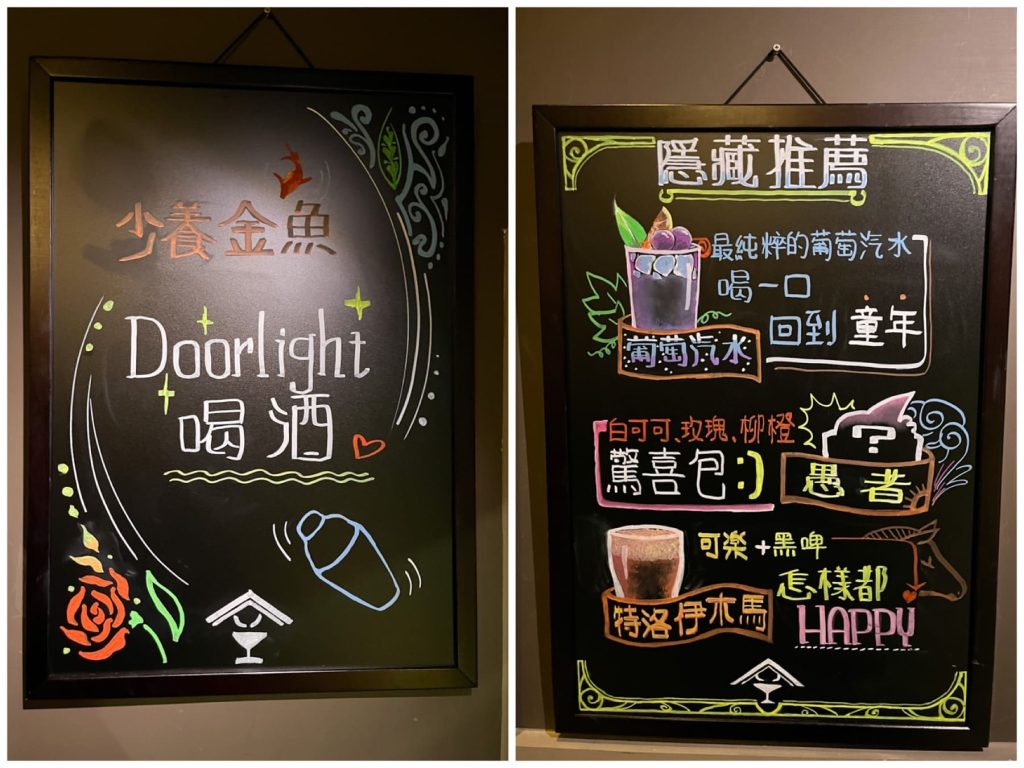 少養金魚
Doorlight
喝酒
隱藏推薦
最純粹的葡萄汽水
喝一口
回到 童年
葡萄汽水
白可可、玫瑰、柳橙
驚喜包:)
?
愚者
可楽+黑啤
怎樣都
HAPPY
特洛伊木馬